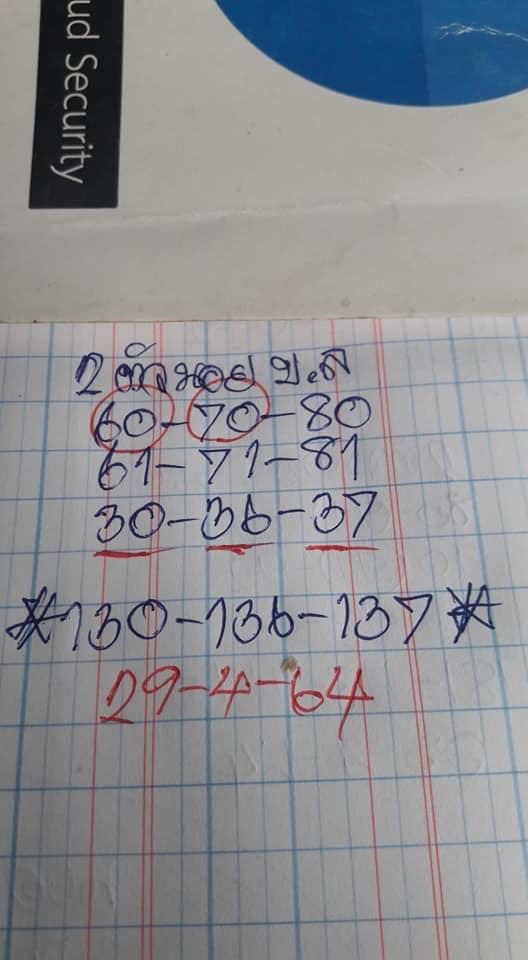 ud Security
2 ตัวหอย ป.ต
60-70-80
61-71-81
30-36-37
*130-136-137*
29-4-64